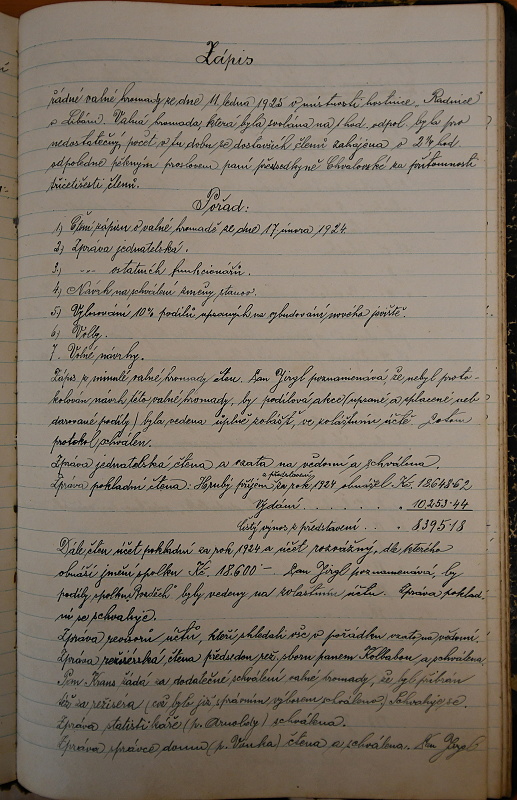 Zápis
řádné valné hromady ze dne 11. ledna 1925 v místnosti hostince „Radnice"
v Libáni. Valná hromada, která byla svolána na 1 hod. odpol. byla pro
nedostatečný počet v tu dobu se dostavších členů zahájena o 2¾ hod
odpoledne pěkným proslovem paní předsedkyně Chvalovské za přítomnosti
třicetišesti členů.
Pořad:
1) Čtení zápisu o valné hromadě ze dne 17. února 1924.
2) Zpráva jednatelská.
3) -"- ostatních funkcionářů.
4) Návrh na schválení změny stanov.
5) Vylosování 10% podílů upsaných na vybudování nového jeviště.
6) Volby.
7. Volné návrhy.
Zápis z minulé valné hromady čten. Pan Jirgl poznamenává že nebyl proto-
kolován návrh této valné hromady, by podílová akce (upsané a splacené neb
darované podíly) byla vedena úplně zvlášť ve zvláštním účtě. Potom
protokol schválen.
Zpráva jednatelská čtena a vzata na vědomí a schválena.
Zpráva pokladní čtena: Hrubý příjem z představení za rok 1924 obnášel Kč. 18.648·62
Vydání . . . . . . 10.253·44
Čistý výnos z představení . . . 8395·18
Dále čten účet pokladní za rok 1924 a účet rozvážný, dle kterého
obnáší jmění spolku Kč. 18.600·– Pan Jirgl poznamenává, by
podíly spolku byly vedeny na zvláštním účtu. Zpráva poklad-
ní se schvaluje.
Zpráva revisorů účtů, kteří shledali vše v pořádku vzata na vědomí.
Zpráva režisérská, čtena předsedou rež. sboru panem Kolbabou a schválena.
Pan Kraus žádá za dodatečné schválení valné hromady, že byl přibrán
též za režisera (což bylo již správním výborem schváleno) Schvaluje se.
Zpráva statistikáře (p. Arnoldy) schválena.
Zpráva správce domu (p. Vonka) čtena a schválena. Pan Jirgl